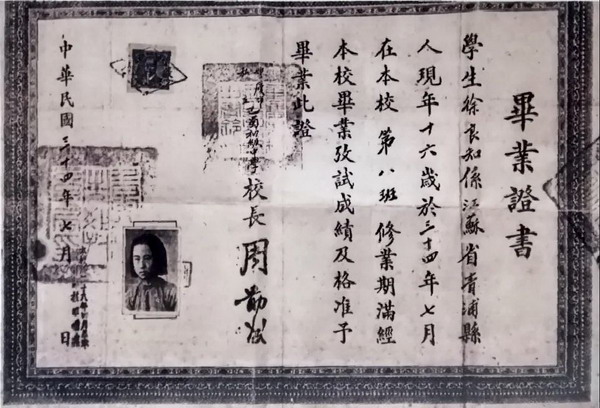 畢業證書
學生徐良知係江蘇省青浦縣
人現年十六歲於三十四年七月
在本校第八班修業期滿經
本校畢業攷試成績及格准予
畢業此證
初級中學校長周
中華民國三十四年七月日